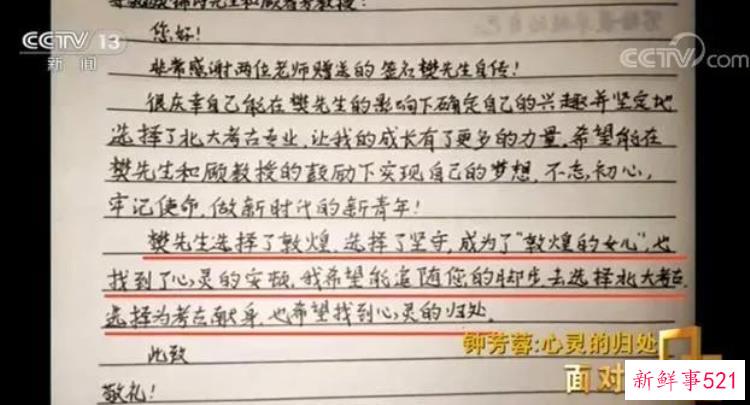 CCTV 13
新闻
CCTV.com
您好!
非常感谢两位老师赠送的签名樊先生自传!
很庆幸自己能在樊先生的影响下确定自己的兴趣并坚定地
选择了北大考古专业,让我的成长有了更多的力量,希望能在
樊先生和顾教授的鼓励下实现自己的梦想,不忘初心,
牢记使命,做新时代的新青年!
樊先生选择了敦煌,选择了坚守,成为了“敦煌的女儿”,也
找到了心灵的安顿,我希望能追随您的脚步,去选择北大考古,
选择为考古献身,也希望找到心灵的归处.
此致
敬礼!
钟芳蓉:心灵的归处
面对
新鲜事521